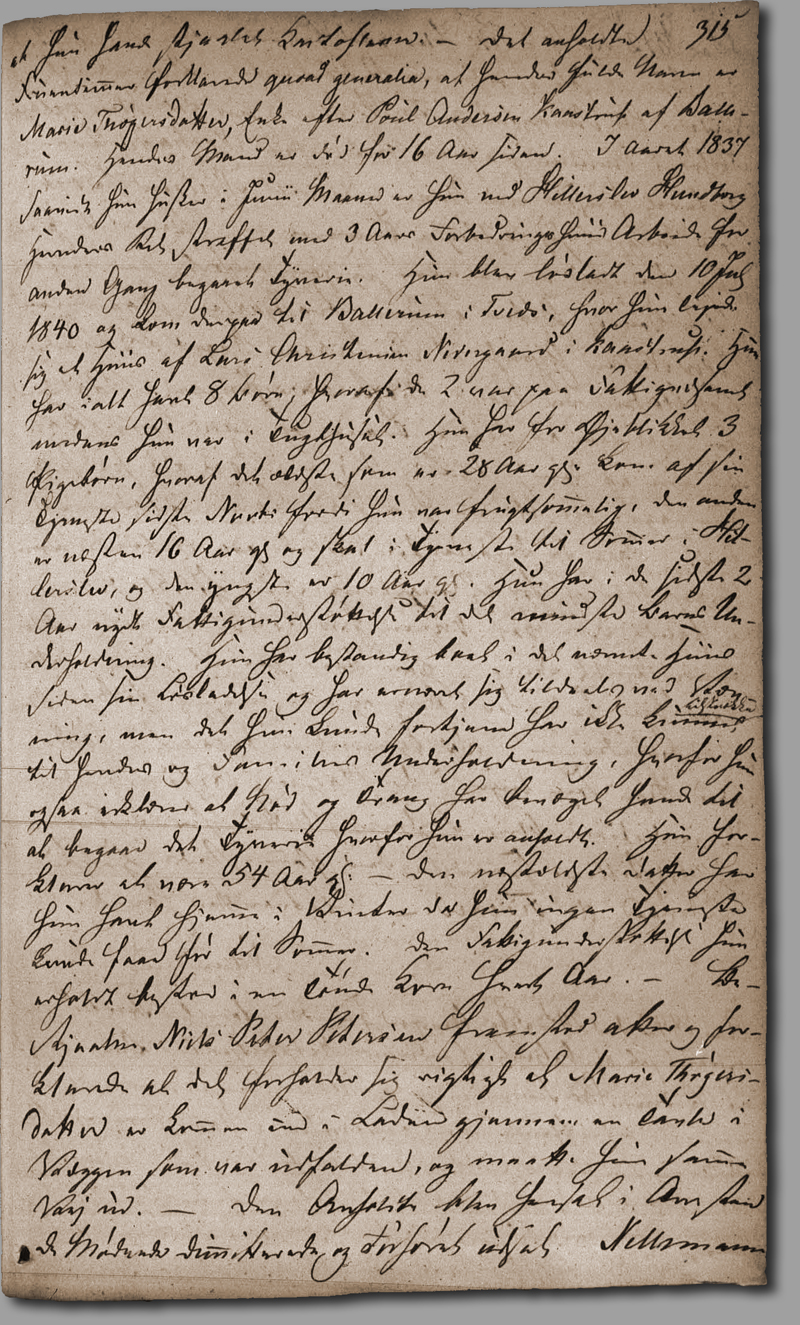 at hun havde stjaalet Kartoflerne. — Det anholdte 315
Fruentimmer forklarede quoad generalia, at hendes fulde Navn er
Marie Thøgersdatter, Enke efter Poul Andersen Kaastrup af Balle-
rum. Hendes Mand er død for 16 Aar siden. I Aaret 1837
saavidt hun husker i Junii Maaned er hun ved Hillerslev Hundborg
Herreders Ret straffet med 3 Aars Forbedringshuus Arbeide for
anden Gang begaaet Tyverie. Hun blev løsladt den 10 Juli
1840 og kom derpaa til Ballerum i Tveds, hvor hun leiede
sig et Huus af Lars Christensen Nørregaard i Kaastrup. Hun
har ialt havt 8 Børn, hvoraf de 2 var paa Fattigvæsenet
medens hun var i Tugthuset. Hun har for Øieblikket 3
Pigebørn, hvoraf det ældste som er 28 Aar gl. kom af sin
Tjeneste sidste Novbr fordi hun var frugtsommelig, den anden
er næsten 16 Aar gl og skal i Tjeneste til Sommer i Hil-
lerslev, og den yngste er 10 Aar gl. Hun har i de sidste 2
Aar nydt Fattigunderstøttelse til det mindste Barns Un-
derholdning. Hun har bestandig boet i det nævnte Huus
siden sin Løsladelse og har ernæret sig tildeels ved
ning, men det hun kunde fortjene har ikke kunnet tilstrække
til hendes og Familiens Underholdning, hvorfor hun
ogsaa erklærer at Nød og Trang har bevæget hende til
at begaae det Tyverie hvorfor hun er anholdt. Hun for-
klarer at være 54 Aar gl. — Den næstældste Datter har
hun havt hjemme i Vinter da hun ingen Tjeneste
kunde faae før til Sommer. Den Fattigunderstøttelse hun
erholdt bestod i en Tønde Korn hvert Aar. — Be-
stjaalne Niels Peter Petersen fremstod atter og for-
klarede at det forholder sig rigtigt at Marie Thøgers-
datter er kommen ind i Laden gjennem en Tavle i
Væggen som var udfalden, og maatte hun samme
Vej ud. — Den Anholdte blev hensat i Arresten
de Mødende dimitterede og Forhøret udsat. Nellemann